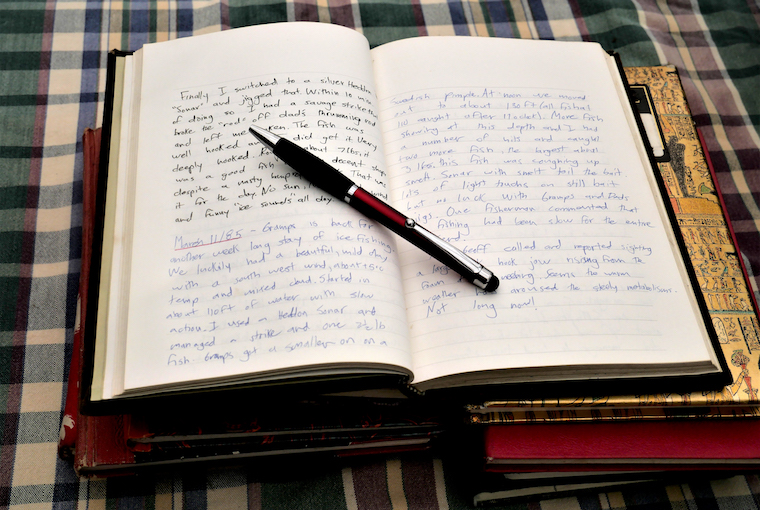 Finally I switched to a silver Heddon
"Sonar" and jigged that. Within 10 mins
of doing so I had a savage strike that
broke the rod off dad's thrumming rod
and left me. The fish was
well hooked did get it. Very
deeply hooked. about 7 lbs, it
was a good decent day
despite a nasty That was
it for the day. No sun, wind
and funny ice sounds all day
March 11/85 - Gramps is back for
another week long stay of ice fishing.
We luckily had a beautiful, mild day
with a south west wind, about +5°C
temp and mixed cloud. Started in
about 110ft of water with slow
action. I used a Heddon Sonar and
managed a strike and one 2½ lb
fish. Gramps got a smaller on on a
Swedish pimple. At noon we moved
out to about 130ft (all fish
caught after 11 o'clock). More fish
showing at this depth and I had
a number of hits and caught
two more fish the largest about
lbs, this fish was coughing up
smelt. Sonar with smelt tail the bait.
of light touches on still bait
but no luck with Gramps and Dads
One fisherman commented that
fishing had been slow for the entire
Geoff called and reported sighting
a hook jaw rising from the
From seems the warm
weather aroused the steely metabolisms.
Not long now!